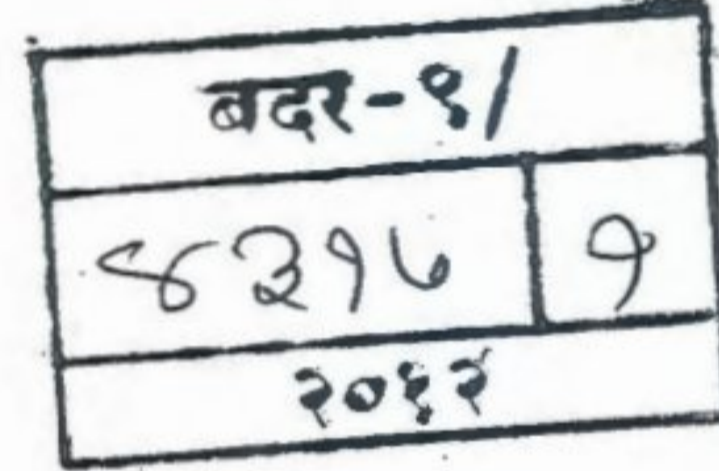 बदर-१/
४३१७ १
२०१२